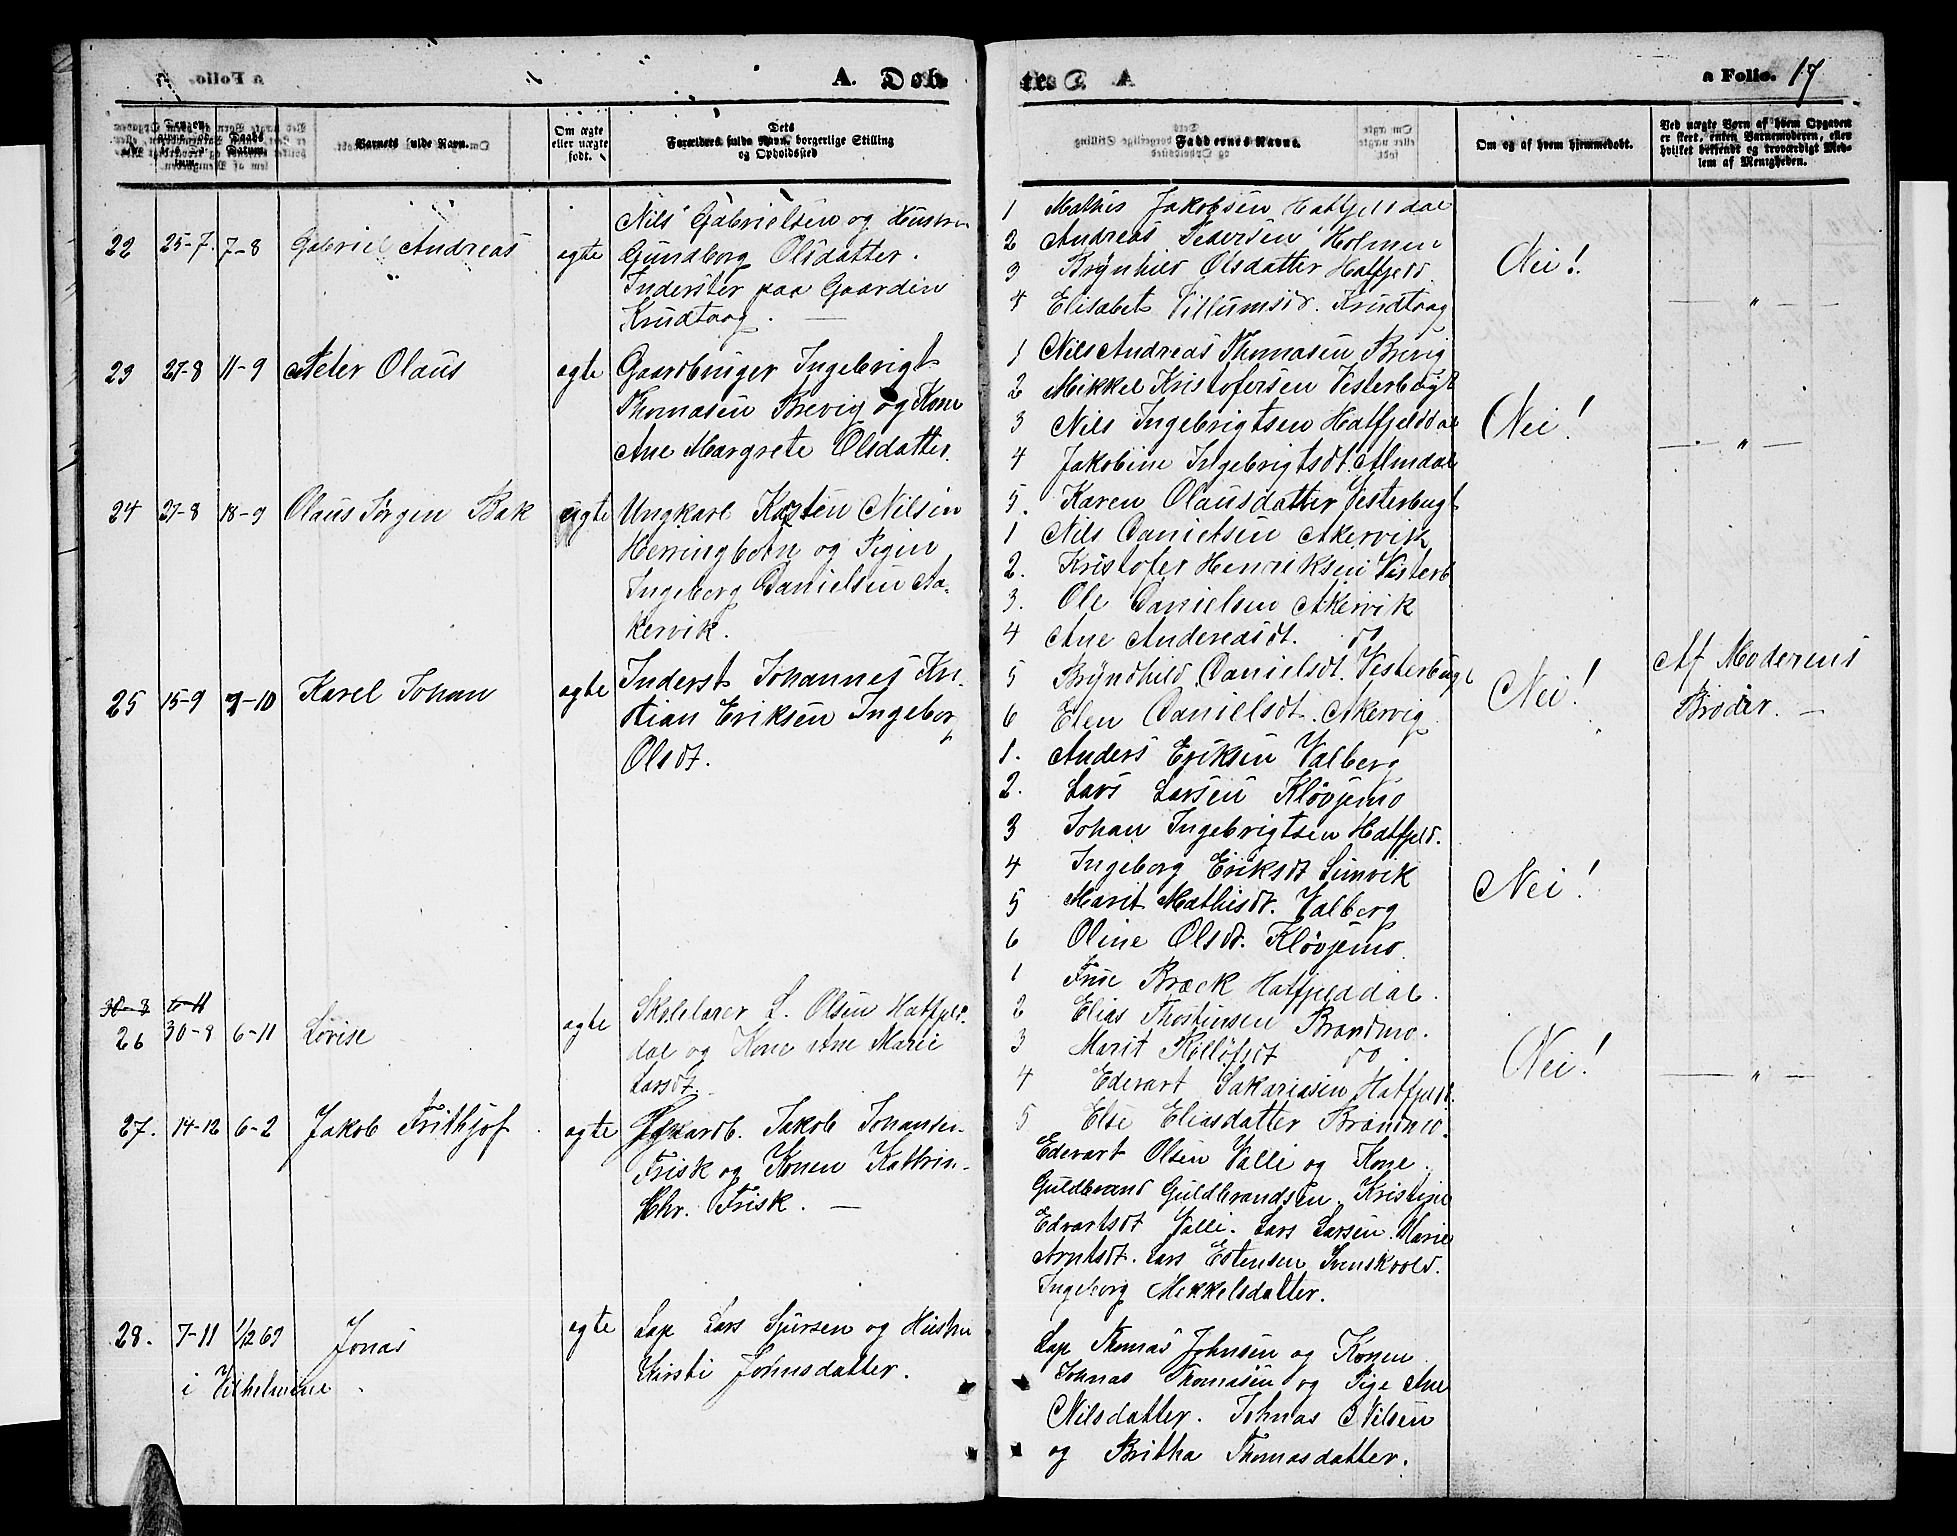 A. Døb
te. a Folio. 17
No. Daabs Datum. Barnets fulde Navn. Om ægte eller uægte født. Dets Forældres fulde Navn, borgerlige Stilling og Opholdssted
Faddernes Navne. Om og af hvem hjemmedøbt. Ved uægte Børn af hvem Opgaven er skeet, enten Barnemoderen, eller hvilket bekjendt og troværdigt Medlem af Menigheden.
22 25-7. 7-8 Gabriel Andreas ægte Nils Gabrielsen og Hustru
Gundborg Olsdatter.
Inderster paa Gaarden
Krudtaag.
23 27-8 11-9 Peter Olaus ægte Gaardbruger Ingebrigt
Thomasen Brevig og Kone
Ane Margrete Olsdatter.
24 27-8 18-9 Olaus Jørgen Bak uægte Ungkarl Kasten Nilsen
Herringbotn og Pigen
Ingeborg Danielsen Aa-
kervik.
25 15-9 9-10 Karel Johan ægte Inderst Johannes Kri-
stian Eriksen Ingeborg
Olsdt.
30-8 6-11
26 30-8 6-11 Lovise ægte Skolelærer L. Olsen Hatfjeld-
dal og Kone Ane Marie
Larsdt.
27. 14-12 6-2 Jakob Frithjof ægte Gaardb. Jakob Johansen
Frisk og Konen Kathrin-
Chr. Frisk.
28. 7-11 1/12 69 Jonas ægte Lap Lars Sjursen og Hustru
i Vilhelmine Kirsti Johnsdatter.
1 Mathis Jakobsen Hatfjelddal
2 Andreas Pedersen Holmen
3 Brynhild Olsdatter Hatfjeld.
4 Elisabet Villumsd. Krudtaag
Nei!
"
1 Nils Andreas Thomasen Brevig
2 Mikkel Kristofersen Vesterbugt
3 Nils Ingebrigtsen Hatfjelddal
4 Jakobine Ingebrigtsdt. Almdal
5. Karen Olausdatter Vesterbugt
Nei!
"
1 Nils Danielsen Akervik
2. Kristofer Henriksen Vesterb
3. Ole Danielsen Akervik
4 Ane Andereasdt. do
5 Bryndhild Danielsdt. Vesterbugt
6 Elen Danielsdt. Akervig.
Nei!
Af Moderens
Broder.
1. Anders Eriksen Valberg
2. Lars Larsen Kløvjemo
3 Johan Ingebrigtsen Hatfjeld.
4 Ingeborg Eriksdt Simvik
5 Marit Mathisdt. Valberg
6 Oline Olsdt. Kløvjemo.
Nei!
1 Frue Bræck Hatfjelddal.
2 Elias Thostensen Brandmo.
3 Marit Rolløfsdt do.
4 Edevart Sakariasen Hatfjeld.
5 Else Eliasdatter Brandmo.
Nei!
"
Edevart Olsen Valli og Kone.
Guldbrand Guldbrandsen. Kristine
Edvartsdt Valli. Lars Larsen. Marie
Arntsdt. Lars Estensen Svenskvold.
Ingeborg Mikkelsdatter.
Lap Thomas Johnsen og Konen
Johnas Thomasen og Pige Ane
Nilsdatter. Johnas Nilsen
og Britha Thomasdatter.